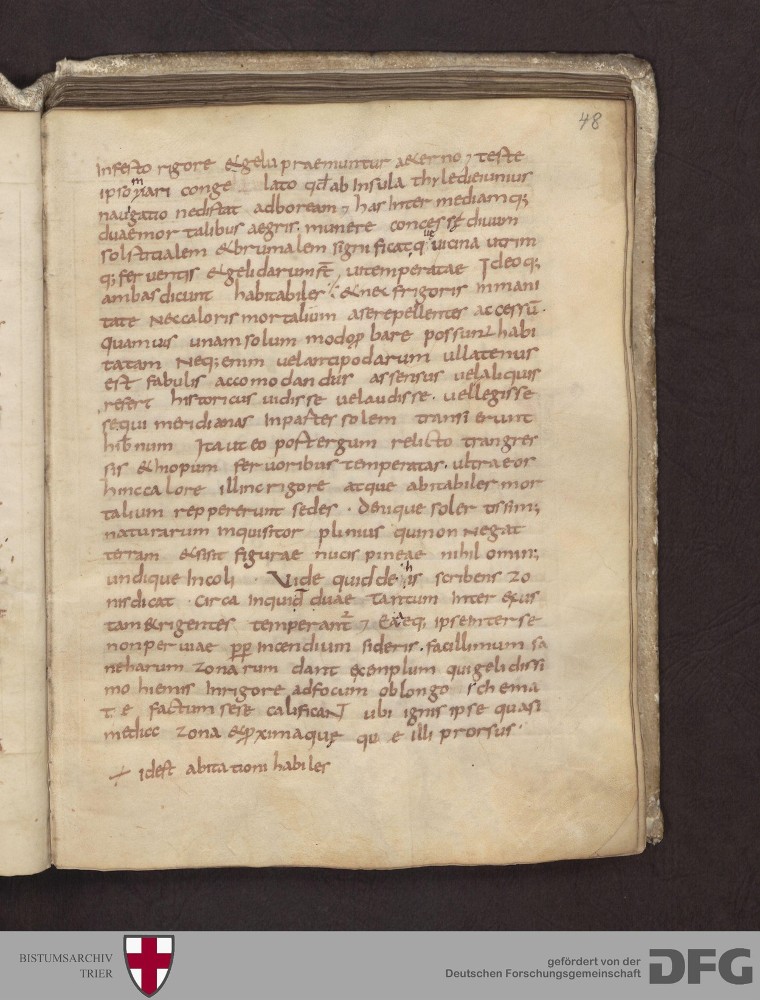 48
Infesto rigore & gelu praemuntur aeterno, teste
ipso mari conge lato qđ ab Insula thyle diei unius
nauigatio nedistat adboream, has Inter mediamq;
duae mortalibus aegris munere concessę diuum
solstitialem & brumalem significat, q; uicina utrim
q; feruentis & gelidarum st, ut temperatae Ideo q;
ambas dicunt habitabiles & nec frigoris inmani
tate Nec caloris mortalium a se repellentes accessū.
quamuis unam solum modo ꝓbare possunt habi
tatam Neq; enim uel antipodarum ullatenus
est fabulis accomodandus assensus uel aliquis
refert historicus uidisse uel audisse uel legisse
se qui meridianas In partes solem transierunt
hib̄num Ita ut eo postergum relicto trangres
sis & hiopum feruoribus temperatas ultra eos
hinc calore illinc rigore atque abitabiles mor
talium reppererunt sedes . Denique solertissim;
naturarum Inquisitor plinius qui non Negat
terram & si sit figurae nucis pineae nihilomin;
undique Incoli . Vide quid de his scribens zo
nis dicat . Circa Inquid duae tantum Inter exus
tam & rigentes temperant, Eaeq; ipse Inter se
non peruiae ꝓp Incendium sideris . facillimum sa
ne harum zonarum dant exemplum qui gelidissi
mo hiemis In rigore ad focum oblongo schema
t e factum sese calificant ubi ignis ipse quasi
mediae zona & ꝓxima quę qu e illi prorsus
idest abitationi habiles
BISTUMSARCHIV
TRIER
gefördert von der
Deutschen Forschungsgemeinschaft
DFG